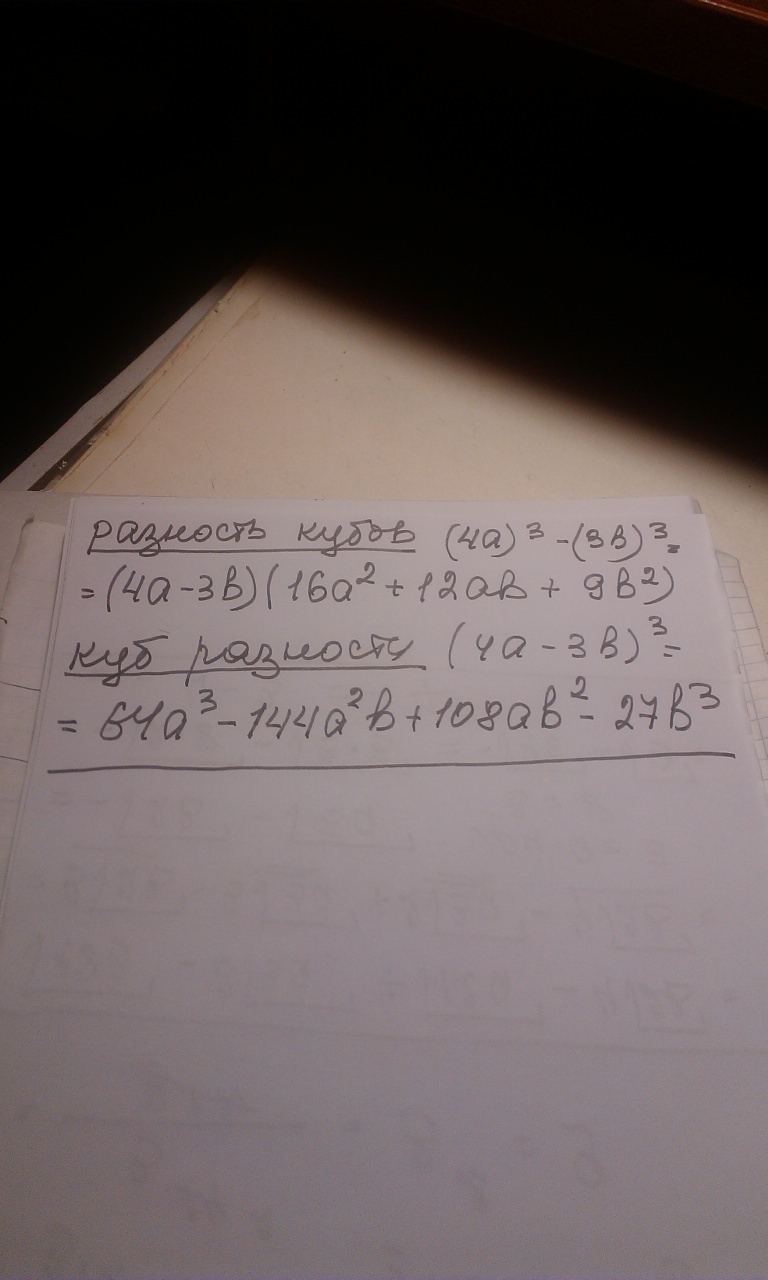 разность кубов (4a)³ -(3b)³=
=(4a-3b)(16a²+12ab+ 9b²)
куб разности (4a-3b)³=
= 64a³-144a²b+108ab²- 27b³